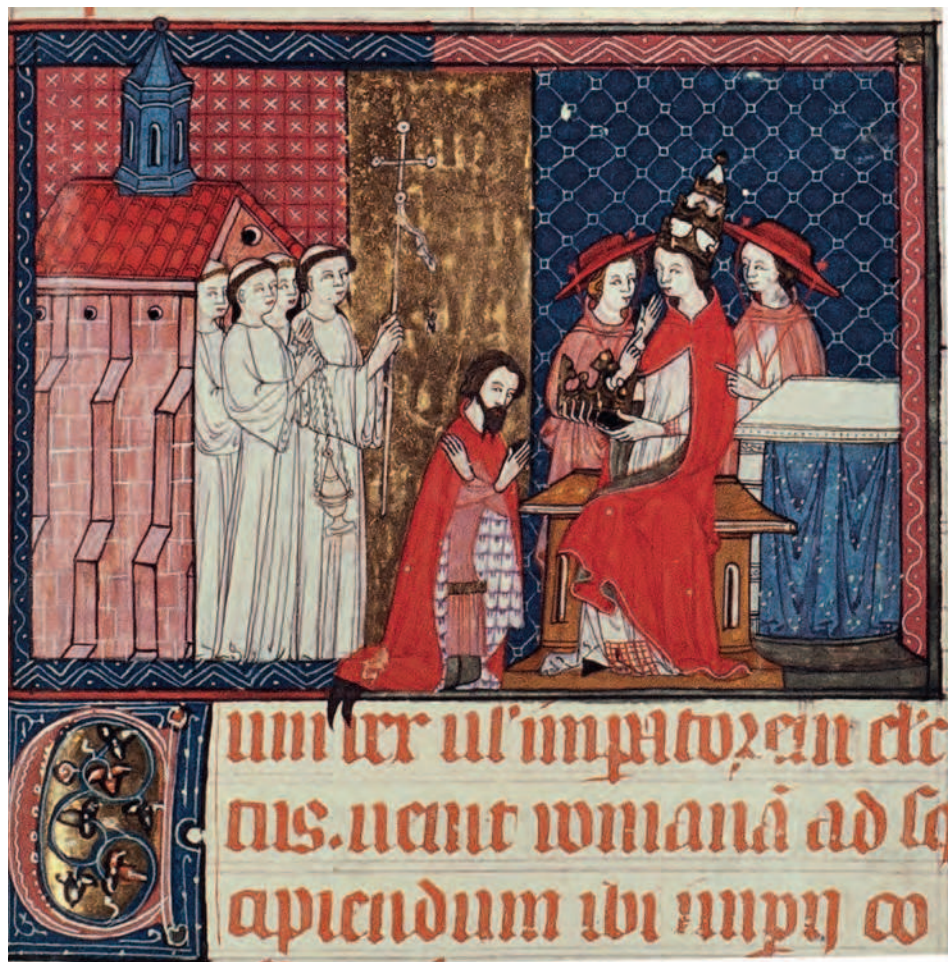 Cum rex ul' impator
tus. uenit romanā ad
apiendum ibi impij co